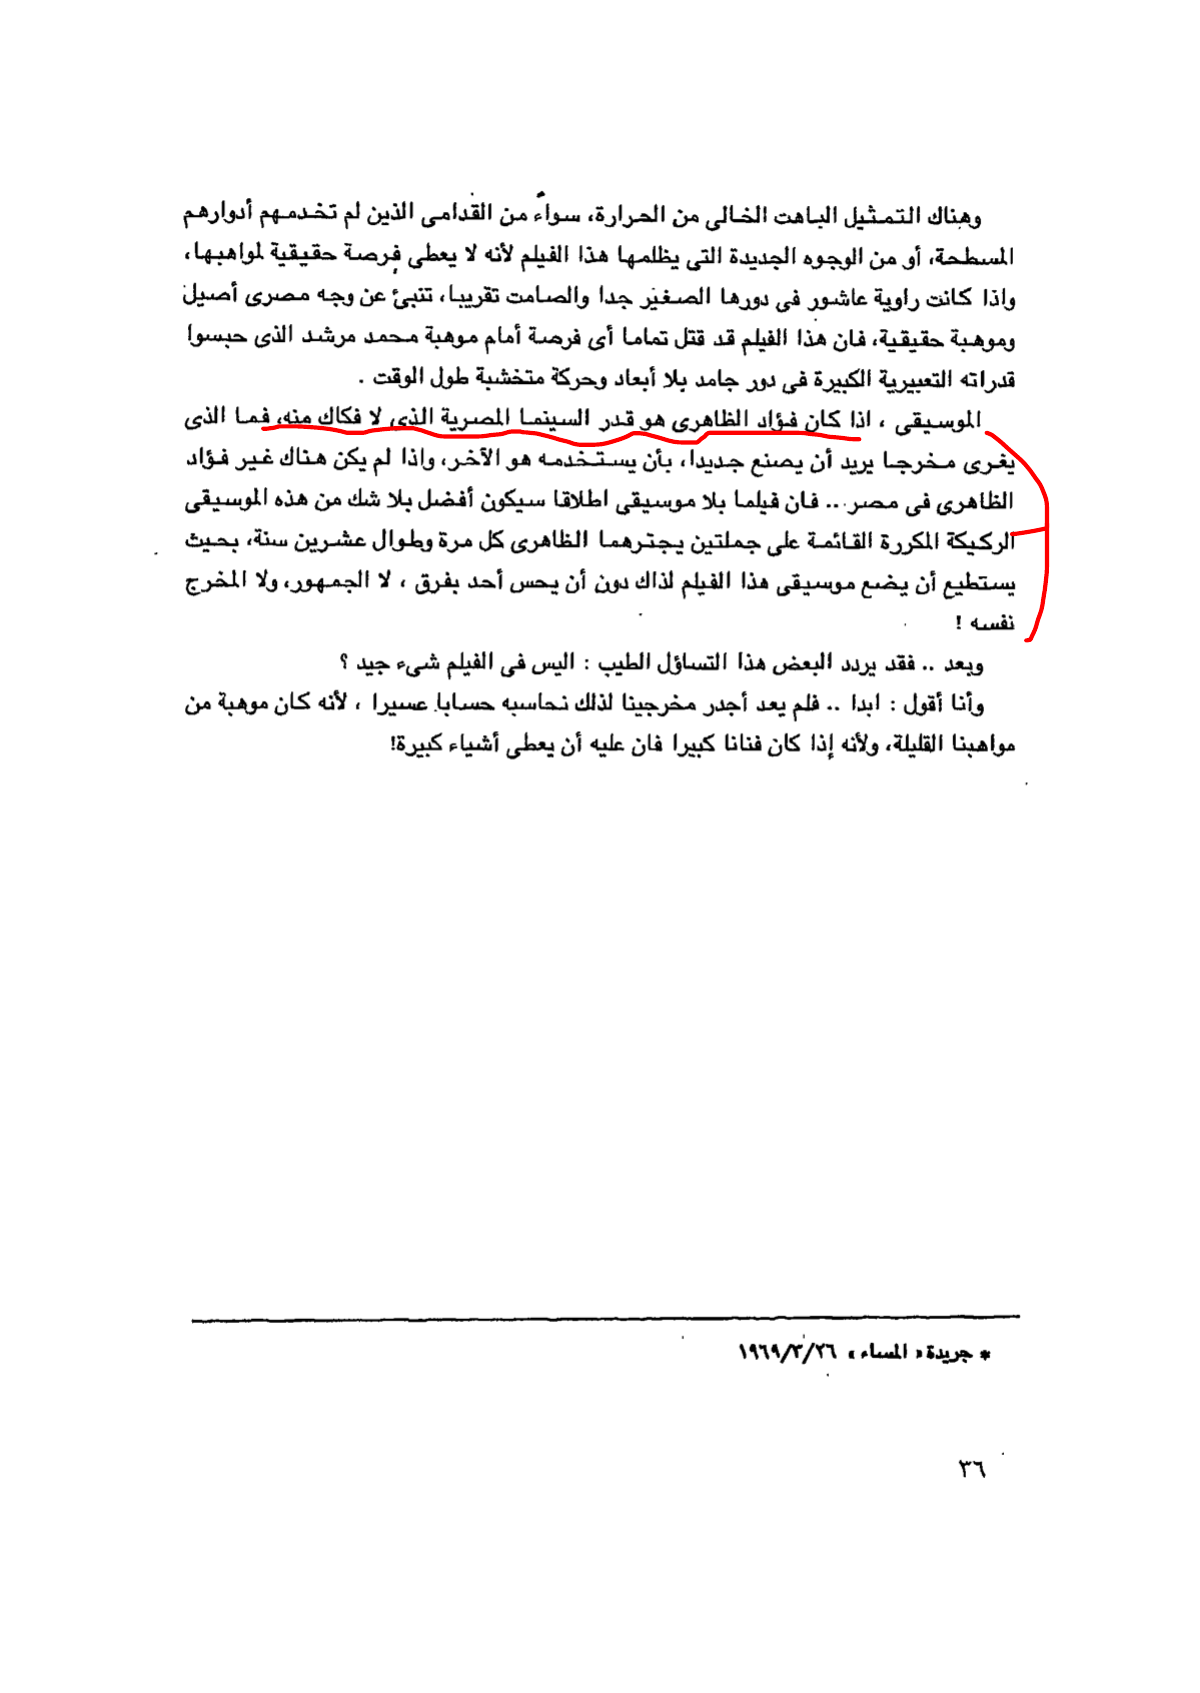 وهناك التمثيل الباهت الخالى من الحرارة، سواء من القدامى الذين لم تخدمهم أدوارهم
المسطحة، أو من الوجوه الجديدة التى يظلمها هذا الفيلم لأنه لا يعطى فرصة حقيقية لمواهبها،
واذا كانت راوية عاشور فى دورها الصغير جدا والصامت تقريبا، تنبئ عن وجه مصرى أصيل
وموهبة حقيقية، فان هذا الفيلم قد قتل تماما أى فرصة أمام موهبة محمد مرشد الذى حبسوا
قدراته التعبيرية الكبيرة فى دور جامد بلا أبعاد وحركة متخشبة طول الوقت .
الموسيقى ، اذا كان فؤاد الظاهرى هو قدر السينما المصرية الذى لا فكاك منه، فما الذى
يغرى مخرجا يريد أن يصنع جديدا، بأن يستخدمه هو الآخر، واذا لم يكن هناك غير فؤاد
الظاهرى فى مصر .. فان فيلما بلا موسيقى اطلاقا سيكون أفضل بلا شك من هذه الموسيقى
الركيكة المكررة القائمة على جملتين يجترهما الظاهرى كل مرة وطوال عشرين سنة، بحيث
يستطيع أن يضع موسيقى هذا الفيلم لذاك دون أن يحس أحد بفرق ، لا الجمهور، ولا المخرج
نفسه !
وبعد .. فقد يردد البعض هذا التساؤل الطيب : اليس فى الفيلم شىء جيد ؟
وأنا أقول : ابدا .. فلم يعد أجدر مخرجينا لذلك نحاسبه حسابا عسيرا ، لأنه كان موهبة من
مواهبنا القليلة، ولأنه إذا كان فنانا كبيرا فان عليه أن يعطى أشياء كبيرة!
* جريدة « المساء » ٢٦/٣/١٩٦٩
٣٦